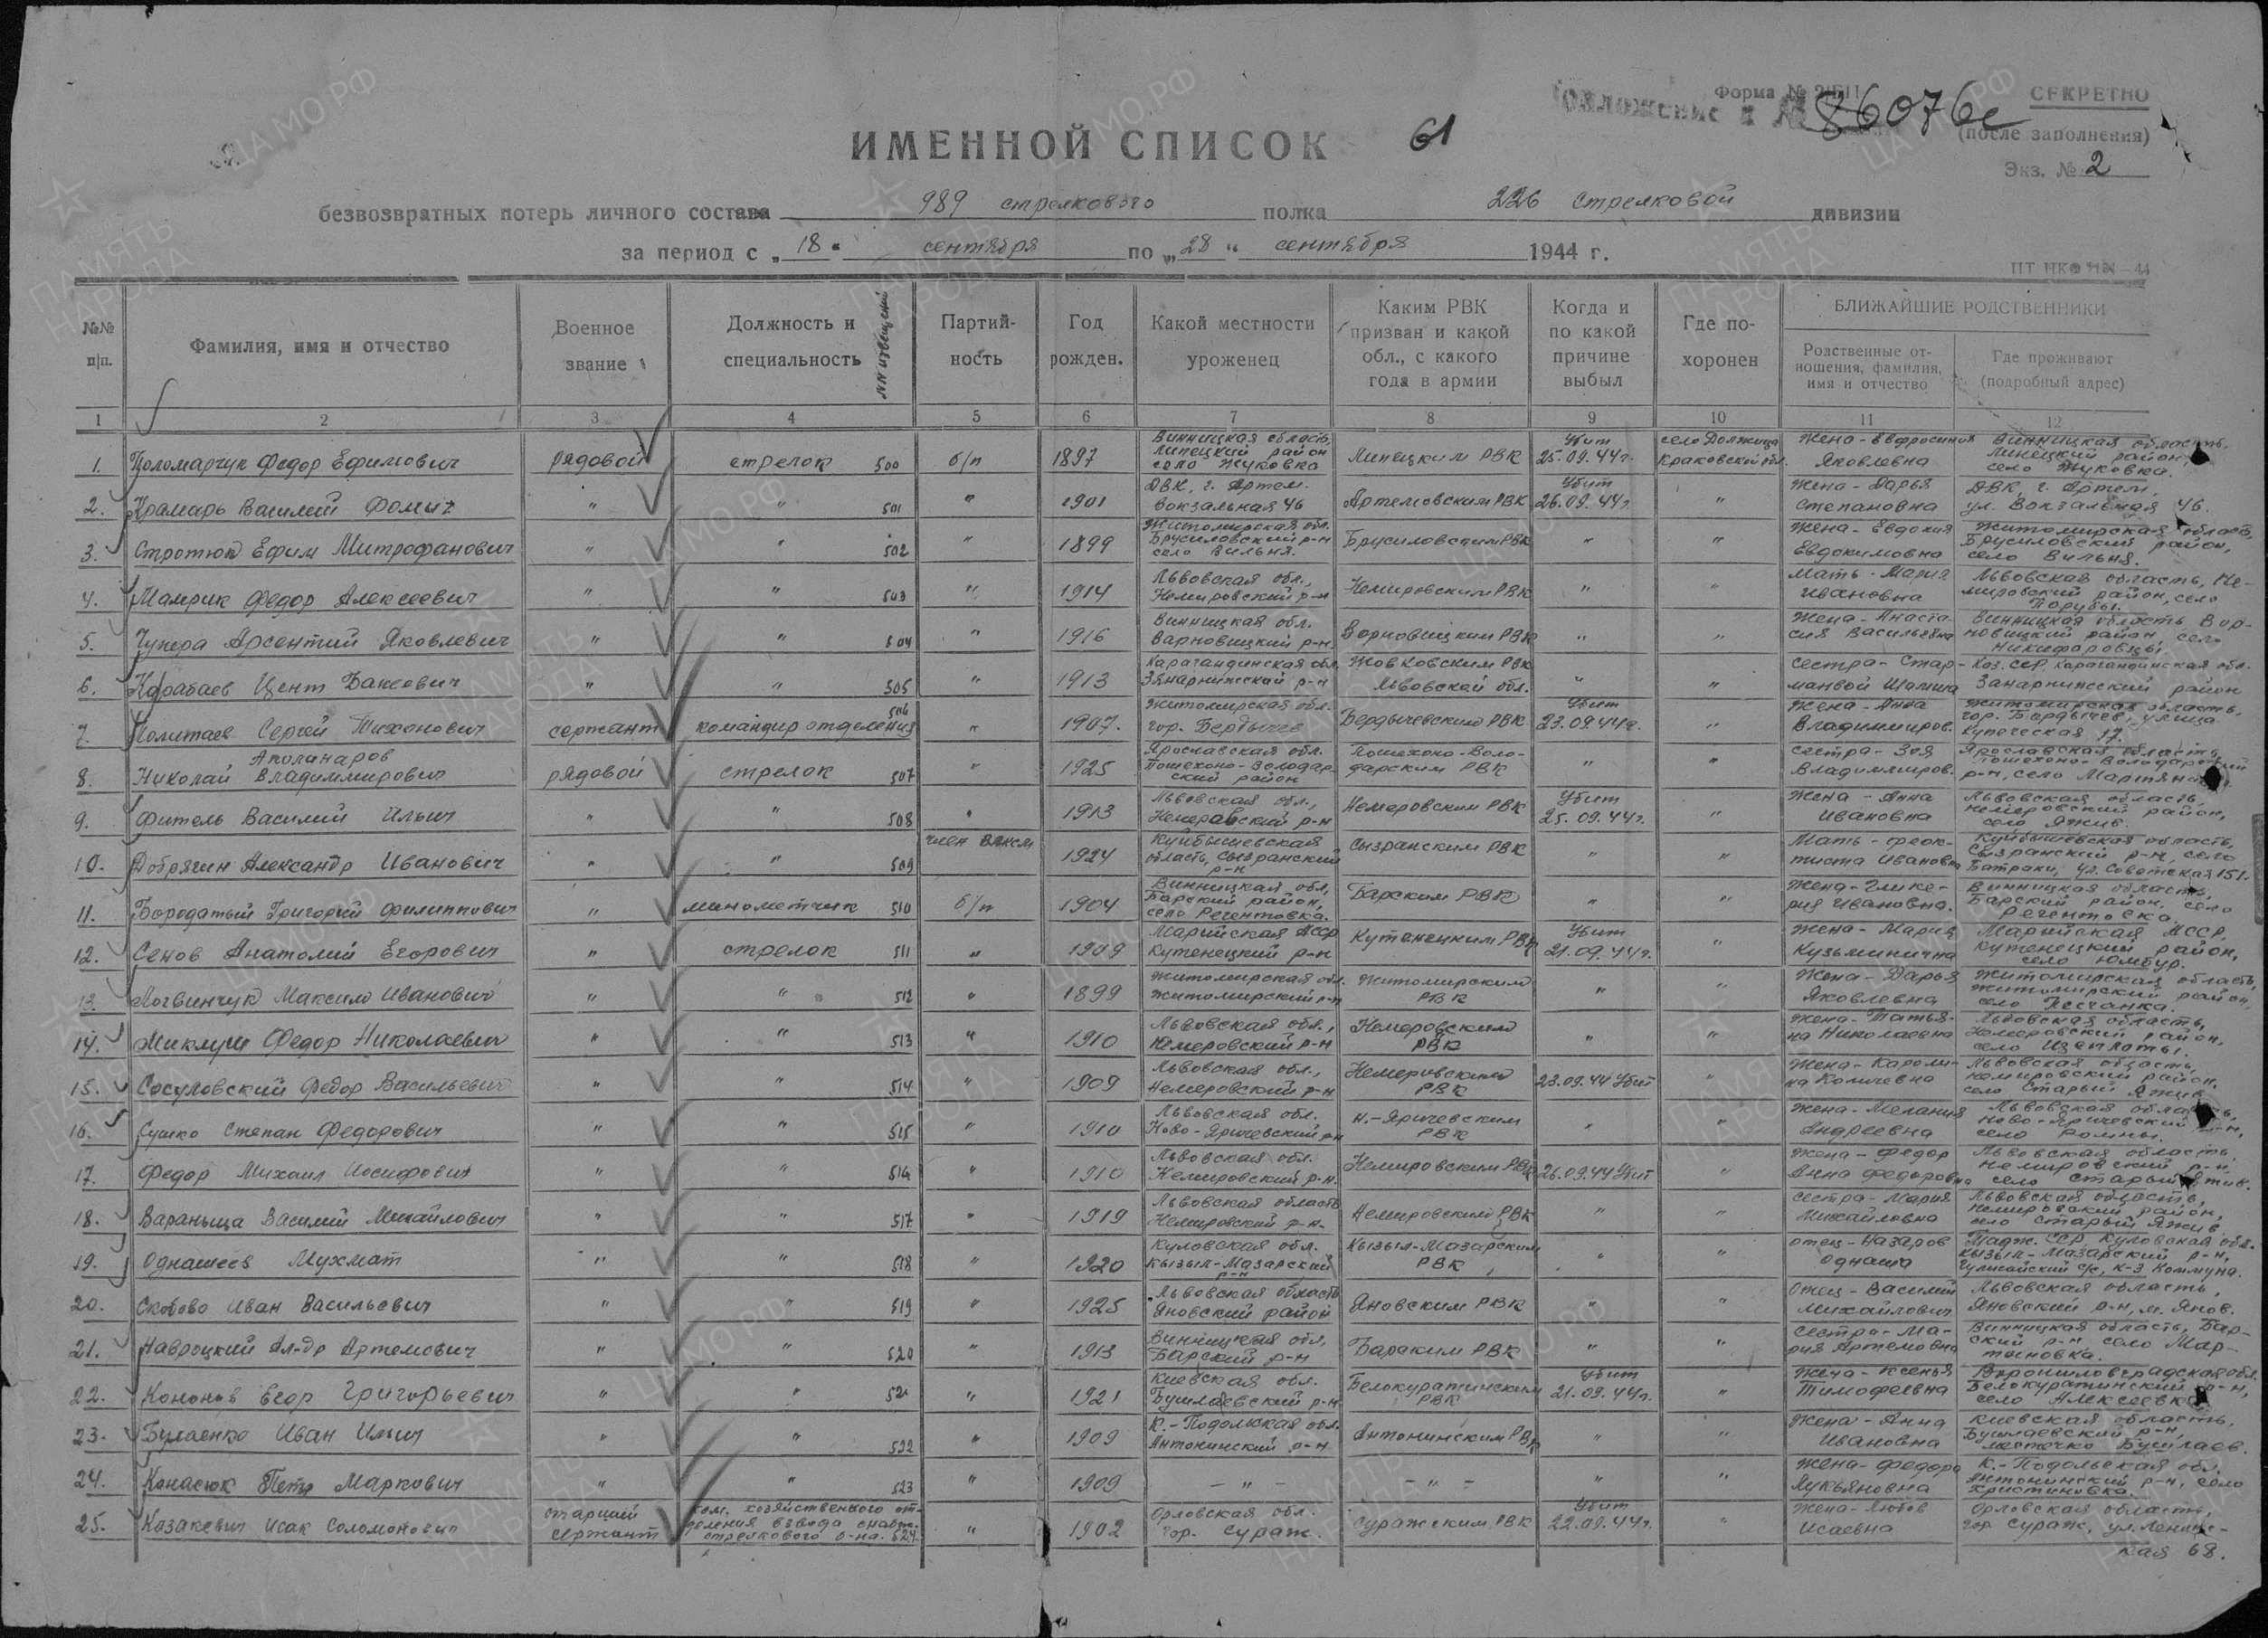 Форма № 2/БП
СЕКРЕТНО
86076с
(после заполнения)
Экз. № 2
ИМЕННОЙ СПИСОК 61
безвозвратных потерь личного состава 989 стрелкового полка 226 стрелковой дивизии
за период с „18“ сентября по „28“ сентября 1944 г.
№№ п/п. Фамилия, имя и отчество Военное звание Должность и специальность №№ извещений Партийность Год рожден. Какой местности уроженец Каким РВК призван и какой обл., с какого года в армии Когда и по какой причине выбыл Где похоронен БЛИЖАЙШИЕ РОДСТВЕННИКИ
Родственные отношения, фамилия, имя и отчество Где проживают (подробный адрес)
1 2 3 4 5 6 7 8 9 10 11 12
1. Поломарчук Федор Ефимович рядовой стрелок 500 б/п 1897 Винницкая область, Липецкий район село Жуковка Липецким РВК Убит 25.09.44г. село Должица Краковской обл. Жена-Евфросиния Яковлевна Винницкая область, Липецкий район, село Жуковка.
2. Крамарь Василий Фомич " " 501 " 1901 ДВК, г. Артем. Вокзальная 46 Артемовским РВК Убит 26.09.44г. " Жена-Дарья Степановна ДВК г. Артем, ул. Вокзальная 46.
3. Стротюк Ефим Митрофанович " " 502 " 1899 Житомирская обл. Брусиловский р-н село Вильня. Брусиловским РВК " " Жена-Евдокия Евдокимовна Житомирская область, Брусиловский район, село Вильня.
4. Мамрик Федор Алексеевич " " 503 " 1914 Львовская обл., Немировский р-н Немировским РВК " " Мать-Мария Ивановна Львовская область, Немировский район, село Порубы.
5. Чупера Арсентий Яковлевич " " 504 " 1916 Винницкая обл. Варновицкий р-н Ворновицким РВК " " Жена-Анастасия Васильевна Винницкая область Ворновицкий район, село Никифаровцы
6. Карабаев Цент Бакеович " " 505 " 1913 Карагандинская обл. р-н Жовковским РВК Львовской обл. " " Сестра- Каз. ССР, Карагандинская обл. район
7. Политаев Сергей Тихонович сержант командир отделения 506 " 1907. Житомирская обл. гор. Бердичев Бердичевским РВК Убит 23.09.44г. " Жена-Анна Владимиров. Житомирская область, гор. Бердичев, улица Купеческая 17.
8. Аполинаров Николай Владимирович рядовой стрелок 507 " 1925 Ярославская обл. Пошехоно-Володарский район Пошехоно-Володарским РВК " " Сестра-Зоя Владимиров. Ярославская область, Пошехоно-Володарский р-н, село
9. Фитель Василий Ильич " " 508 " 1913 Львовская обл., Немеравский р-н Немеровским РВК Убит 25.09.44г. " Жена-Анна Ивановна Львовская область, Немеровский район, село Яжив.
10. Добрягин Александр Иванович " " 509 член ВЛКСМ 1924 Куйбышевская область, Сызранский р-н Сызранским РВК " " Мать-Феоктиста Ивановна Куйбышевская область, Сызранский р-н, село Батраки, ул. Советская 151.
11. Бородатый Григорий Филиппович " минометчик 510 б/п 1904 Винницкая обл, Барский район, село Регентовка. Барским РВК " " Жена-Гликерия Ивановна. Винницкая область, Барский район, село Регентовка.
12. Сенов Анатолий Егорович " стрелок 511 " 1909 Марийская АССР Кутенецкий р-н Кутенецким РВК Убит 21.09.44г. " Жена-Мария Кузьминична Марийская АССР, Кутенецкий район, село Юмбур.
13. Логвинчук Максим Иванович " " 512 " 1899 Житомирская обл. Житомирский р-н Житомирским РВК " " Жена-Дарья Яковлевна Житомирская область, Житомирский район, село Песчанка.
14. Миклуш Федор Николаевич " " 513 " 1910 Львовская обл., Немеровский р-н Немеровским РВК " " Жена-Татьяна Николаевна Львовская область, Немеровский район, село
15. Сосуловский Федор Васильевич " " 514 " 1909 Львовская обл., Немеровский р-н Немеровским РВК 23.09.44 Убит " Жена-Каролина Львовская область, Немировский район, село Старый Яжив
16. Сушко Степан Федорович " " 515 " 1910 Львовская обл. Ново-Яричевский р-н Н.-Яричевским РВК " " Жена-Мелания Андреевна Львовская область, Ново-Яричевский р-н, село
17. Федор Михаил Иосифович " " 516 " 1910 Львовская обл. Немировский р-н. Немировским РВК 26.09.44 Убит " Жена-Федор Анна Федоровна Львовская область, Немировский р-н село Старый Яжив.
18. Вараныца Василий Михайлович " " 517 " 1919 Львовская область Немировский р-н. Немировским РВК " " Сестра-Мария Михайловна Львовская область, Немировский район, село Старый Яжив
19. Однашеев Мухмат " " 518 " 1920 Куловская обл. Кызыл-Мазарский р-н Кызыл-Мазарским РВК " " отец-Назаров Однаша Тадж. ССР Куловская обл. Кызыл-Мазарский р-н, к-з Коммуна.
20. Скобово Иван Васильевич " " 519 " 1925 Львовская область Яновский район Яновским РВК " " Отец-Василий Михайлович Львовская область, Яновский р-н, м. Янов.
21. Навроцкий Ал-др Артемович " " 520 " 1913 Винницкая обл, Барский р-н Барским РВК " " Сестра-Мария Артемовна Винницкая область, Барский р-н село Мартыновка.
22. Кононов Егор Григорьевич " " 521 " 1921 Киевская обл. Бушлаевский р-н Белокуратинским РВК Убит 21.09.44г. " Жена-Ксенья Тимофеевна Ворошиловградская обл. Белокуратинский р-н, село Алексеевка
23. Булаенко Иван Ильич " " 522 " 1909 К.-Подольская обл. Антонинский р-н Антонинским РВК " " Жена-Анна Ивановна Киевская область, Бушлаевский р-н, местечко Бушлаев.
24. Конасюк Петр Маркович " " 523 " 1909 - " - - " - " " Жена-Федора Лукьяновна К.-Подольская обл. Антонинский р-н, село Христиновка.
25. Казакевич Исак Соломонович старший сержант ком. хозяйственного отделения взвода снабж. стрелкового б-на. 524 " 1902 Орловская обл. гор. Сураж. Суражским РВК Убит 22.09.44г. " Жена-Любовь Исаевна Орловская область, гор. Сураж, ул. Ленинская 68.